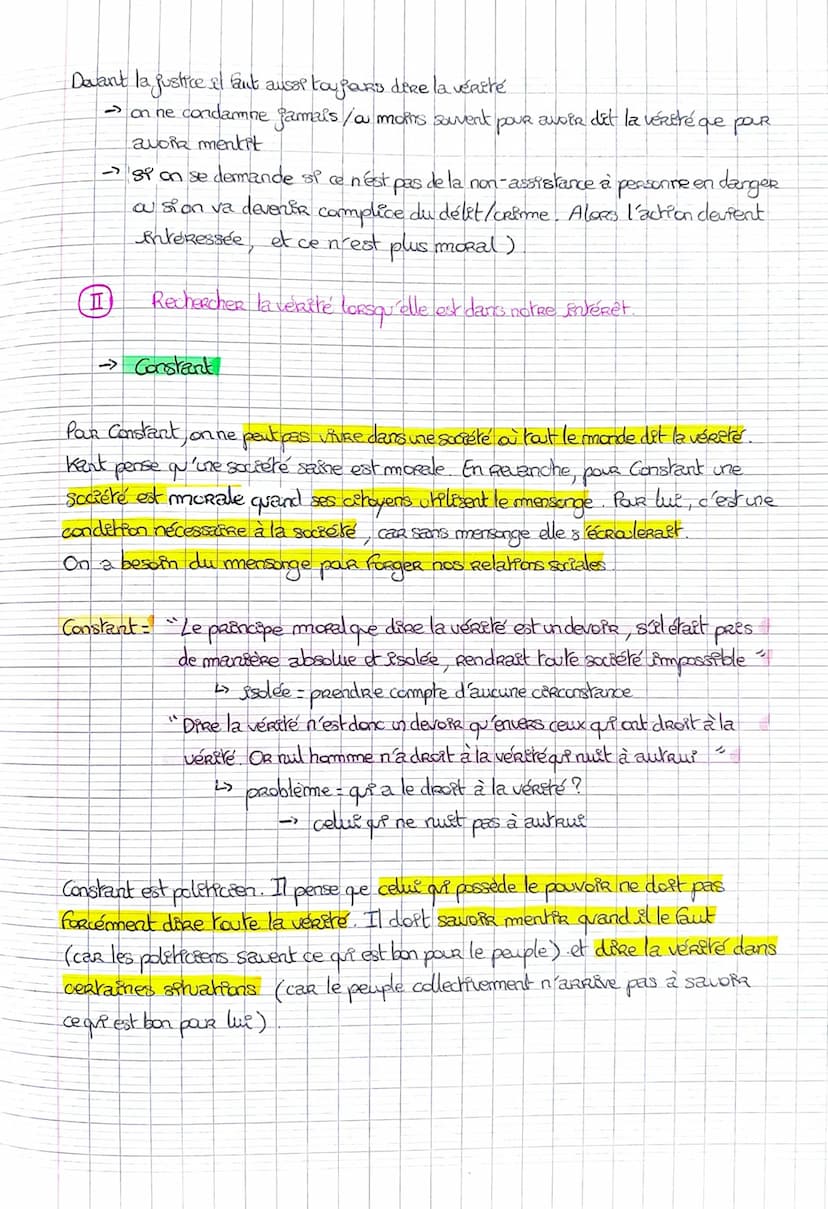 Devant la justice il faut aussi toujours dire la vérité
→ on ne condamne jamais /ou moins souvent pour avoir dit la vérité que pour
avoir mentit
→ si on se demande si ce n'est pas de la non-assistance à personne en danger
ou si on va devenir complice du délit/crime. Alors l'action devient
intéressée, et ce n'est plus moral)
II Rechercher la vérité lorsqu'elle est dans notre intérêt.
→ Constant
Pour Constant, on ne peut pas vivre dans une société où tout le monde dit la vérité.
Kant pense qu'une société saine est morale. En revanche, pour Constant une
société est morale quand ses citoyens utilisent le mensonge. Pour lui, c'est une
condition nécessaire à la société, car sans mensonge elle s'écroulerait.
On a besoin du mensonge pour forger nos relations sociales.
Constant = "Le principe moral que dire la vérité est un devoir, s'il était pris
de manière absolue et isolée, rendrait toute société impossible"
↳ isolée = prendre compte d'aucune circonstance
"Dire la vérité n'est donc un devoir qu'envers ceux qui ont droit à la
vérité. Or nul homme n'a droit à la vérité qui nuit à autrui"
↳ problème = qui a le droit à la vérité ?
→ celui qui ne nuit pas à autrui
Constant est politicien. Il pense que celui qui possède le pouvoir ne doit pas
forcément dire toute la vérité. Il doit savoir mentir quand il le faut
(car les politiciens savent ce qui est bon pour le peuple) et dire la vérité dans
certaines situations (car le peuple collectivement n'arrive pas à savoir
ce qui est bon pour lui).